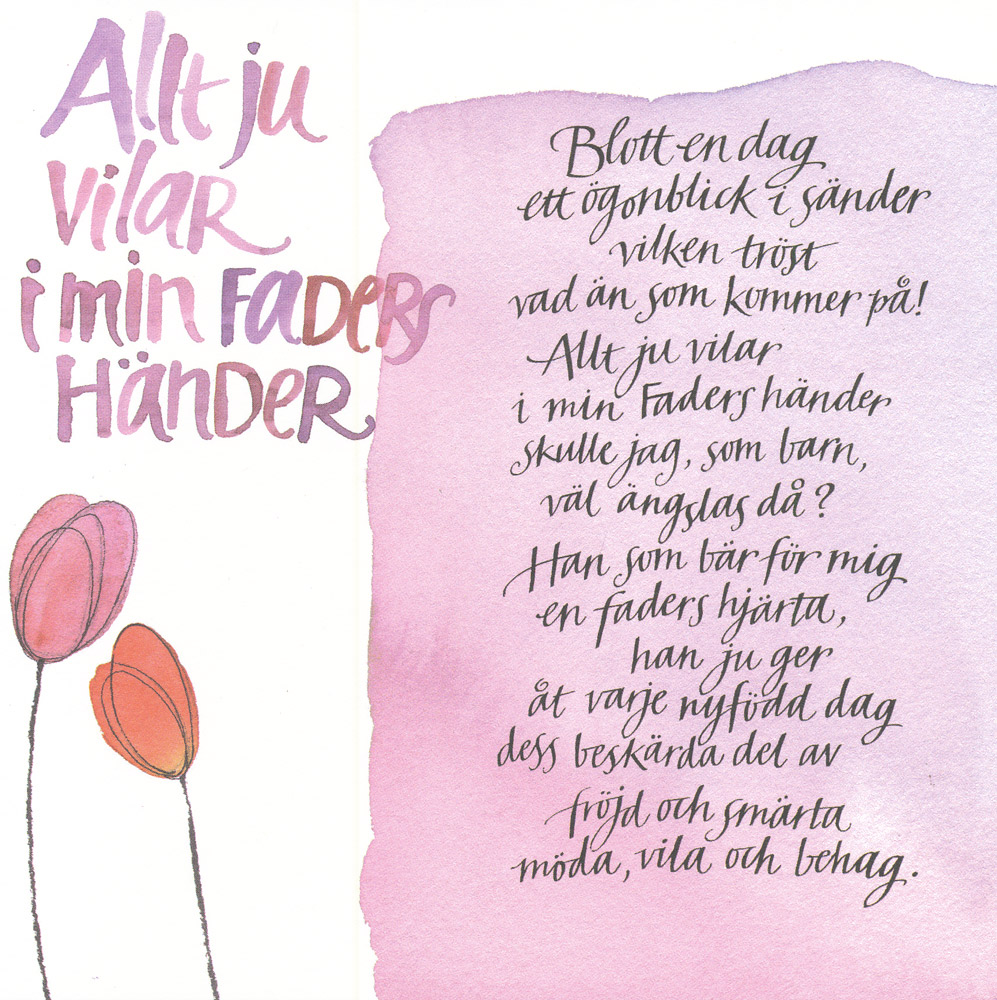 Allt ju
vilar
i min FADERS
HÄNDER
Blott en dag
ett ögonblick i sänder
vilken tröst
vad än som kommer på!
Allt ju vilar
i min Faders händer
skulle jag, som barn,
väl ängslas då?
Han som bär för mig
en faders hjärta,
han ju ger
åt varje nyfödd dag
dess beskärda del av
fröjd och smärta
möda, vila och behag.